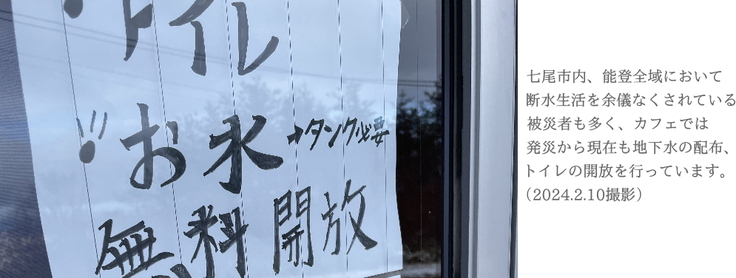 ・トイレ
・お水→タンク必要
無料開放
七尾市内、能登全域において
断水生活を余儀なくされている
被災者も多く、カフェでは
発災から現在も地下水の配布、
トイレの開放を行っています。
（2024.2.10撮影）